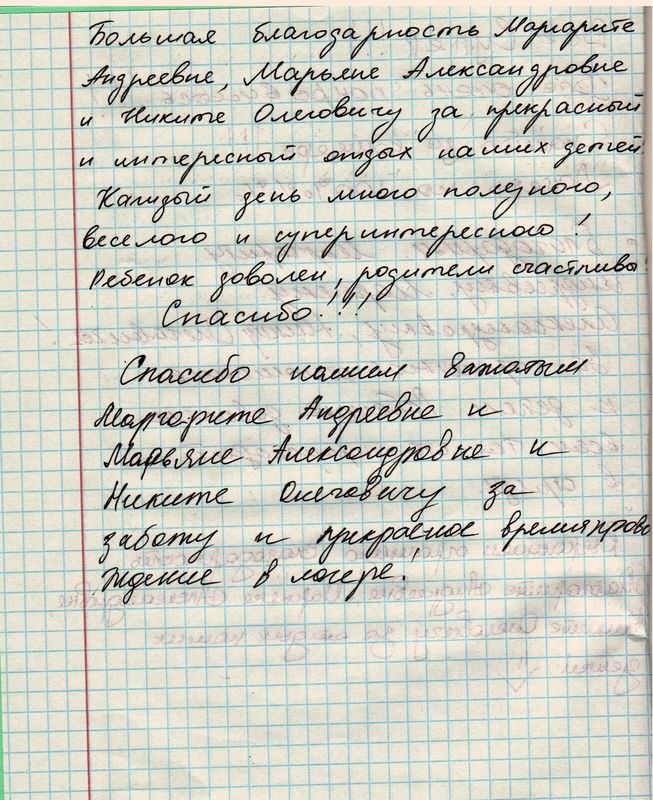 Большая благодарность Маргарите
Андреевне, Марьяне Александровне
и Никите Олеговичу за прекрасный
и интересный отдых наших детей
Каждый день много полезного,
веселого и суперинтересного!
Ребенок доволен, родители счастливы!
Спасибо!!!
Спасибо нашим важатым
Маргарите Андреевне и
Марьяне Александровне и
Никите Олеговичу за
заботу и прекрасное времяпрово
ждение в лагере!